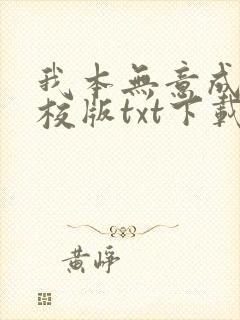 我本無意成
校版txt下載
黄崢